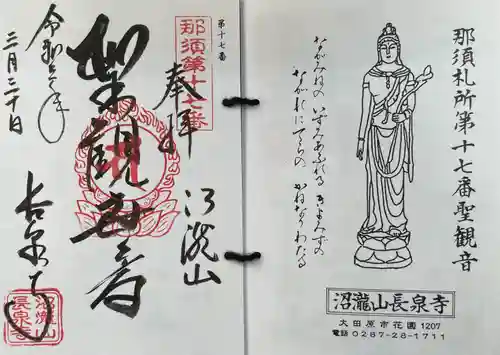 那須札所第十七番聖観音
ながみねの いずみあふれる きよみずの
ながれにてらの かねなりわたる
沼瀧山長泉寺
大田原市花園1207
電話0287-28-1711
第十七番
那須第十七番
奉拝
沼瀧山
聖観世音
長泉寺
三月三十日
沼瀧山
長泉寺